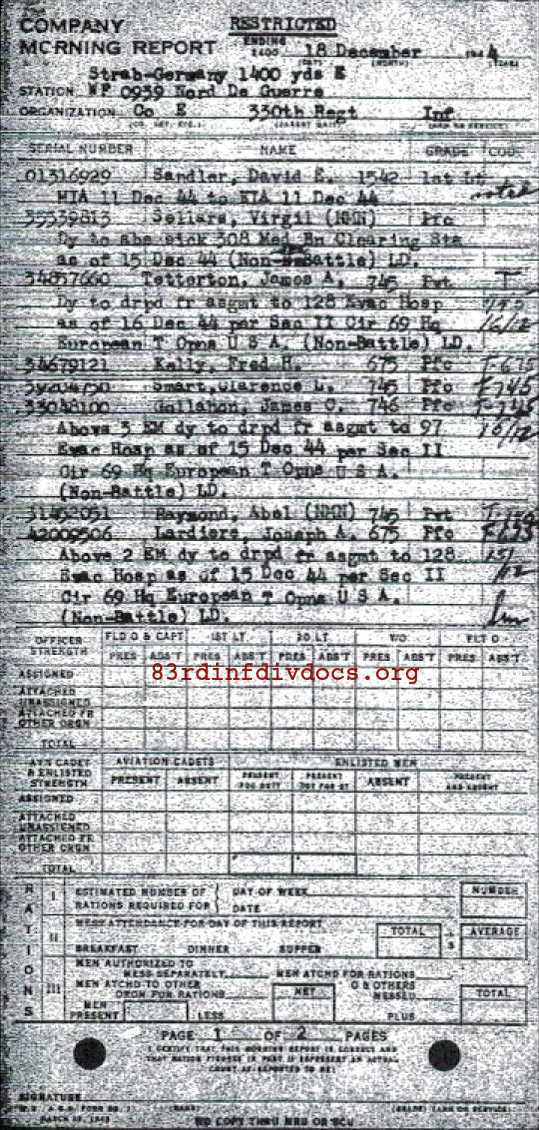 COMPANY RESTRICTED
MORNING REPORT ENDING 1400 18 December 1944
Strab-Germany 1400 yds E
STATION WF 0939 Nord De Guerre
ORGANIZATION Co E 330th Regt Inf
SERIAL NUMBER NAME GRADE CODE
01316929 Sandler, David E. 1542 1st Lt
MIA 11 Dec 44 to KIA 11 Dec 44
35539813 Sellars, Virgil (NMN) Pfc
Dy to abs sick 308 Med Bn Clearing Sta
as of 15 Dec 44 (Non-Battle) LD.
34857660 Tetterton, James A. 745 Pvt T
Dy to drpd fr asgmt to 128 Evac Hosp
as of 16 Dec 44 per Sec II Cir 69 Hq 16/12
European T Opns U S A. (Non-Battle) LD.
34679121 Kelly, Fred H. 675 Pfc T-675
Smart, Clarence L. 745 Pfc T-745
33048100 Callahon, James C. 746 Pfc
Above 3 EM dy to drpd fr asgmt to 97 15/12
Evac Hosp as of 15 Dec 44 per Sec II
Cir 69 Hq European T Opns U S A.
(Non-Battle) LD.
31452051 Raymond, Abel (NMN) 745 Pvt
42009506 Lardiere, Joseph A. 675 Pfc T-675
Above 2 EM dy to drpd fr asgmt to 128 15/
Evac Hosp as of 15 Dec 44 per Sec II 12
Cir 69 Hq European T Opns U S A.
(Non-Battle) LD.
OFFICER STRENGTH FLD O & CAPT 1ST LT 2D LT W O FLT O
PRES ABS'T PRES ABS'T PRES ABS'T PRES ABS'T PRES ABS'T
83rdinfdivdocs.org
ASSIGNED
ATTACHED UNASSIGNED
ATTACHED FR OTHER ORGN
TOTAL
AVN CADET & ENLISTED STRENGTH AVIATION CADETS ENLISTED MEN
PRESENT ABSENT PRESENT FOR DUTY PRESENT NOT FOR DY ABSENT PRESENT AND ABSENT
ASSIGNED
ATTACHED UNASSIGNED
ATTACHED FR OTHER ORGN
TOTAL
RATIONS
I ESTIMATED NUMBER OF RATIONS REQUIRED FOR DAY OF WEEK DATE NUMBER
II MESS ATTENDANCE FOR DAY OF THIS REPORT TOTAL ÷ 3 AVERAGE
BREAKFAST DINNER SUPPER
III MEN AUTHORIZED TO MESS SEPARATELY MEN ATCHD FOR RATIONS
MEN ATCHD TO OTHER ORGN FOR RATIONS NET O & OTHERS MESSED TOTAL
MEN PRESENT LESS PLUS
PAGE 1 OF 2 PAGES
I CERTIFY THAT THIS MORNING REPORT IS CORRECT AND
SIGNATURE
(NAME) (GRADE) (ARM OR SERVICE)
NO COPY THRU MRU OR SCU